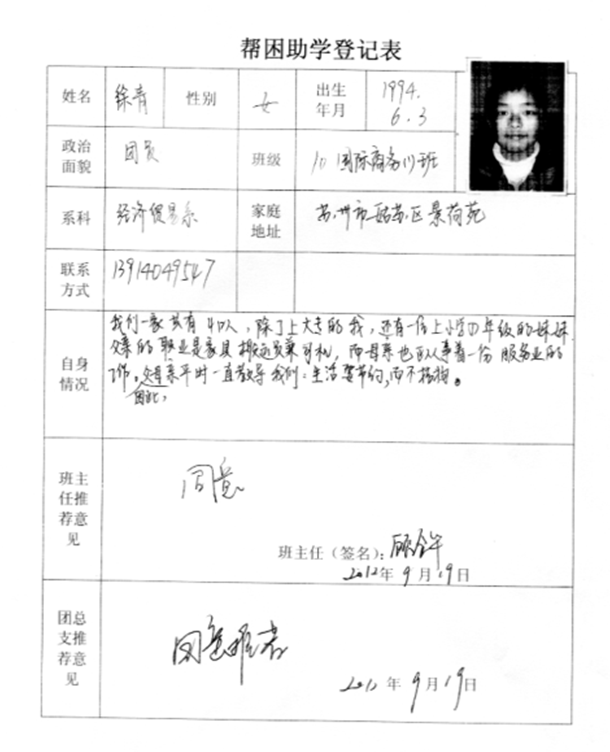 帮困助学登记表
姓名 徐青 性别 女 出生年月 1994.6.3
政治面貌 团员 班级 10国际商务(1)班
系科 经济贸易系 家庭地址 苏州市姑苏区景荷苑
联系方式 13914049547
自身情况
我们一家共有4口人,除了上大专的我,还有一位上小学四年级的妹妹
父亲的职业是家具搬运员兼司机,而母亲也从事着一份服务业的
工作。父母亲平时一直教导我们:生活要节约,而不拮据。
因此,
班主任推荐意见
同意
班主任(签名):
2012年9月19日
团总支推荐意见
同意推荐
2012年9月19日